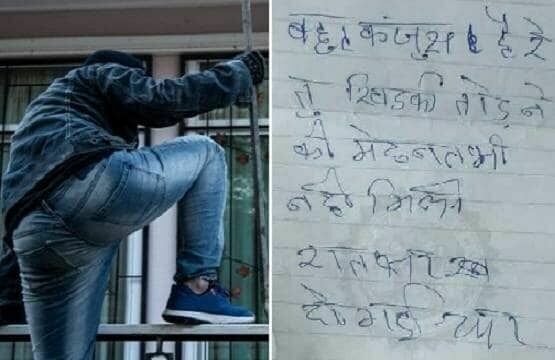 बहुत कंजुस है रे
तु खिडकी तोड़ने
की मेहनत भी
नही मिली
रात
हो गई